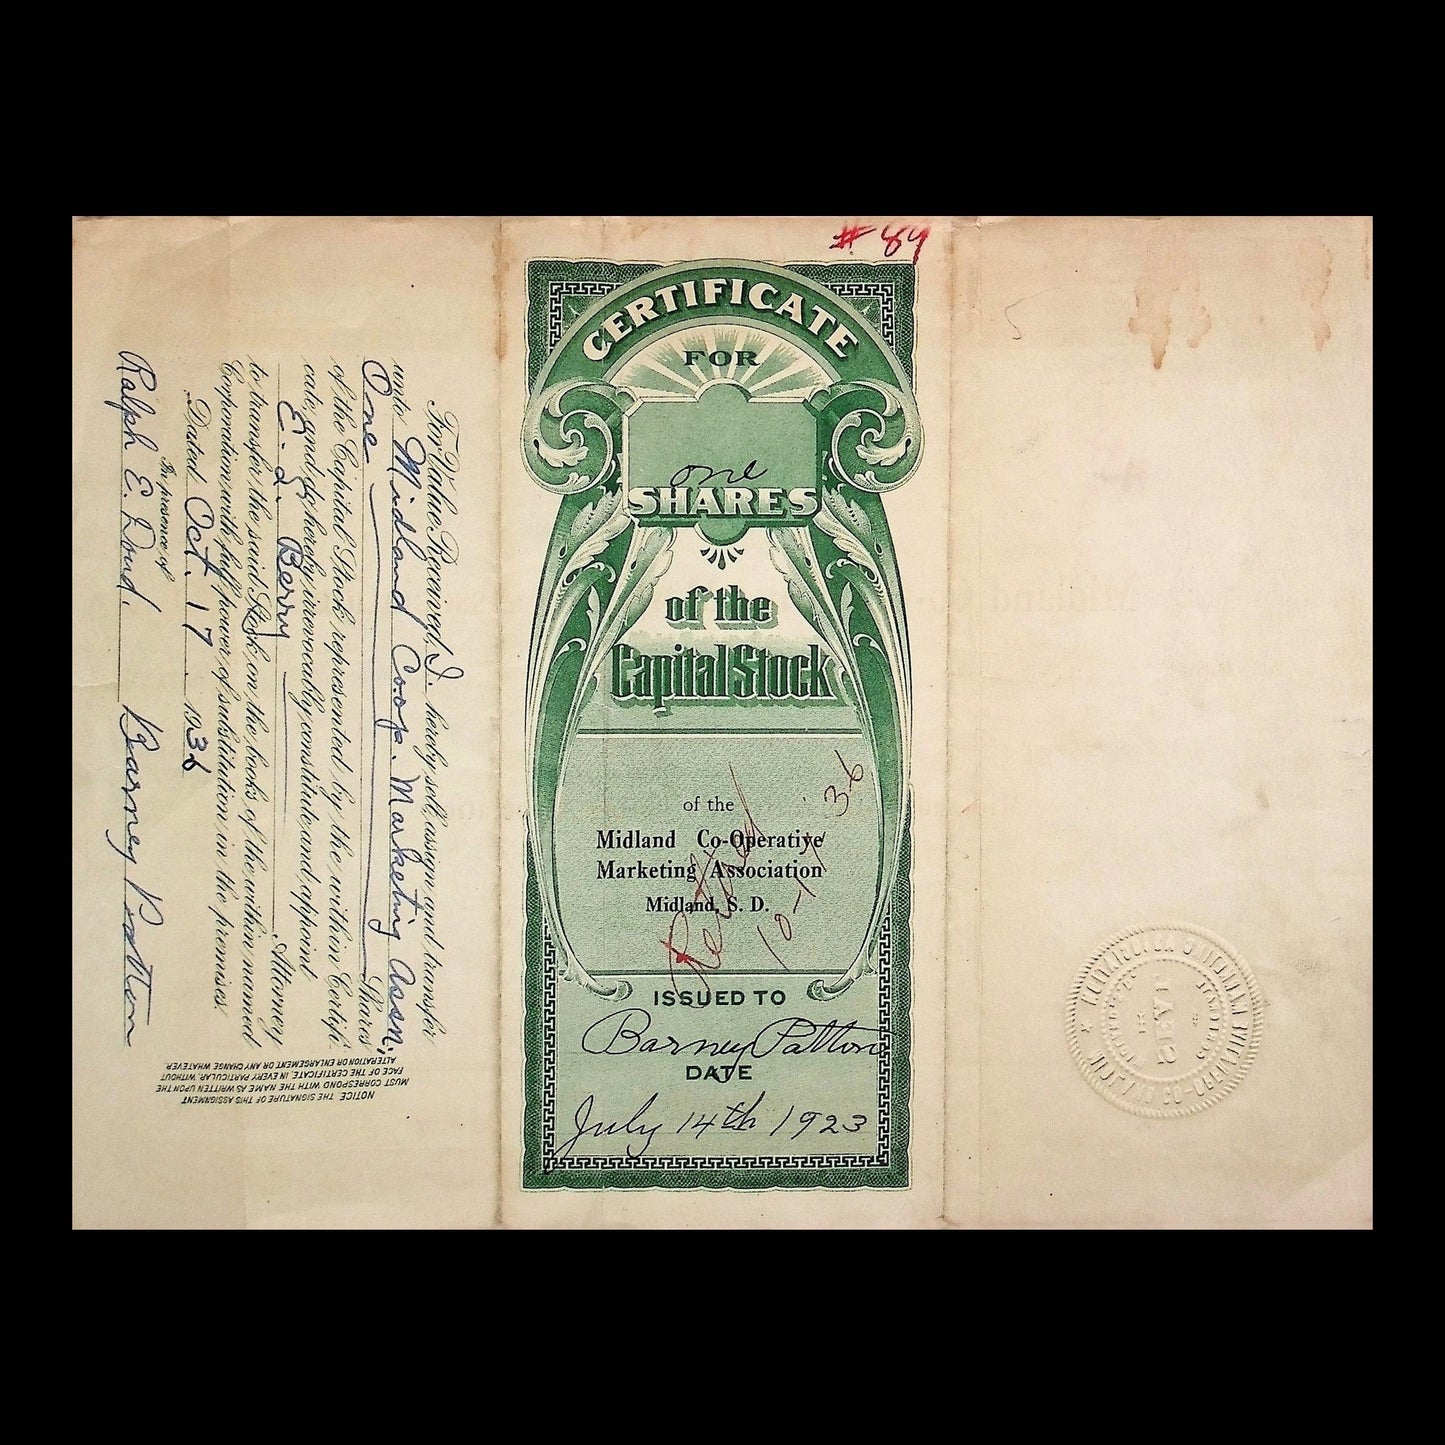 # 89
CERTIFICATE
FOR
one
SHARES
of the
Capital Stock
of the
Midland Co-Operative
Marketing Association
Midland, S. D.
Retired
10-17-36
ISSUED TO
Barney Patton
DATE
July 14th 1923
For Value Received, I hereby sell, assign and transfer
unto Midland Coop. Marketing Assn,
One Shares
of the Capital Stock represented by the within Certifi-
cate, and do hereby irrevocably constitute and appoint
E. L. Berry Attorney
to transfer the said Stock on the books of the within named
Corporation with full power of substitution in the premises.
Dated Oct. 17. 1936
In presence of
Ralph E. Doud. Barney Patton
NOTICE. THE SIGNATURE OF THIS ASSIGNMENT
MUST CORRESPOND WITH THE NAME AS WRITTEN UPON THE
FACE OF THE CERTIFICATE, IN EVERY PARTICULAR, WITHOUT
ALTERATION OR ENLARGEMENT, OR ANY CHANGE WHATEVER.